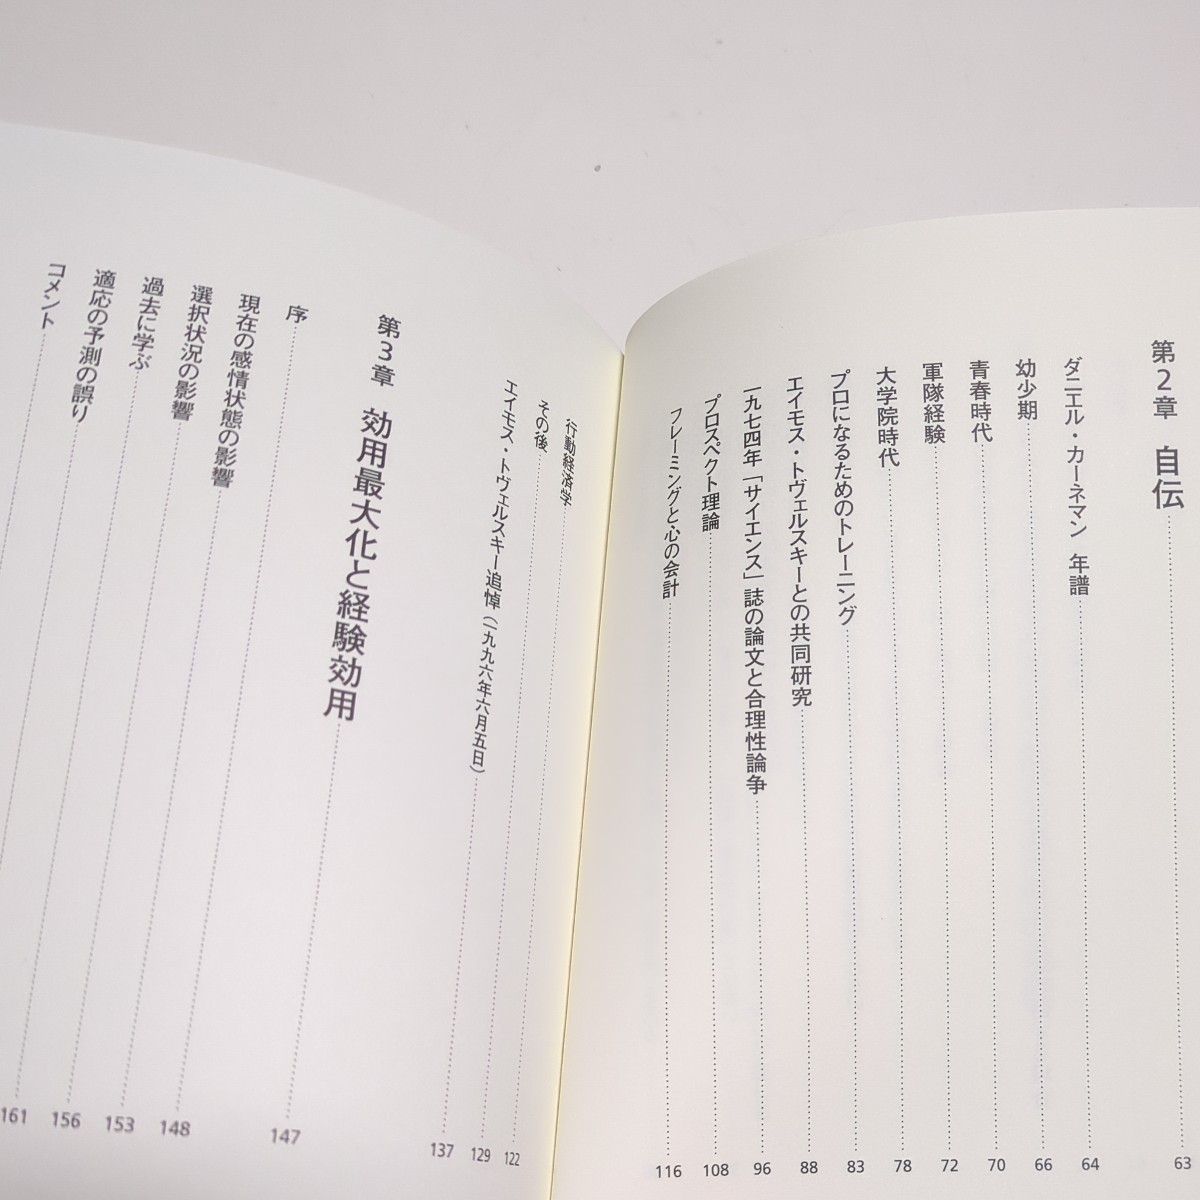 第2章 自伝 63
ダニエル・カーネマン 年譜 64
幼少期 66
青春時代 70
軍隊経験 72
大学院時代 78
プロになるためのトレーニング 83
エイモス・トヴェルスキーとの共同研究 88
一九七四年「サイエンス」誌の論文と合理性論争 96
プロスペクト理論 108
フレーミングと心の会計 116
行動経済学 122
その後 129
エイモス・トヴェルスキー追悼(一九九六年六月五日) 137
第3章 効用最大化と経験効用 147
序 148
現在の感情状態の影響 153
選択状況の影響 156
過去に学ぶ 161
適応の予測の誤り
コメント